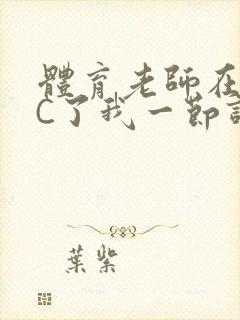 體育老師在
C了我一節
葉紫